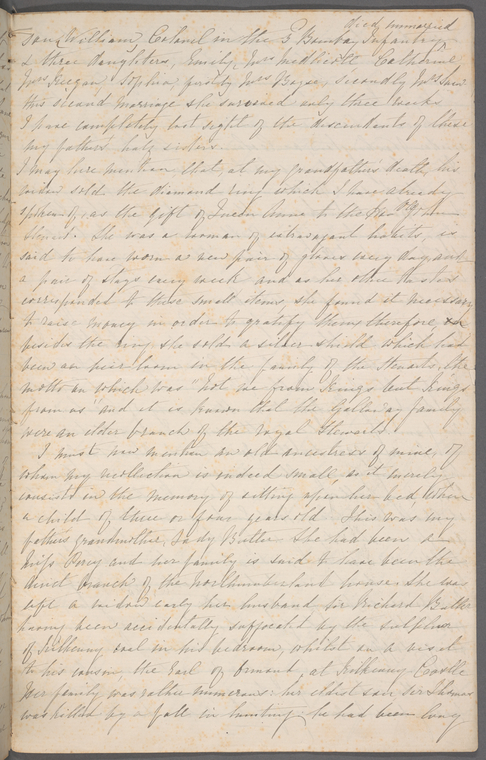 died unmarried
Son, William, Colonel in the 3 Bombay Infantry,
& three daughters, Emily, Mrs Catherine
Mrs Sophia, firstly Mrs secondly Mrs
this second marriage she survived only three weeks
I have completely lost sight of the descendants of these
my fathers half sisters.
I may here mention that, at my grandfathers death, his
widow sold the diamond ring which I have already
spoken of, as the gift of Queen Anne to the
Stewart. She was a woman of extravagant habits, is
said to have worn a new pair of gloves every day, and
a pair of stays every week and as her other
corresponded to these small items, she found it necessary
to raise money in order to gratify them therefore,
besides the ring she sold a silver shield which had
been an heir loom in the family of the Stewarts, the
motto on which was "not we from Kings but Kings
from us" and it is known that the Galloway family
were an elder branch of the royal Stewarts
I must now mention an old ancestress of mine, of
whom my recollection is indeed small, as it merely
consists in the memory of sitting upon her bed when
a child of three or four years old This was my
fathers grandmother, Lady Butler She had been a
Miss Percy and her family is said to have been the
direct branch of the Northumberland house. She was
left a widow early her husband Sir Richard Butler
having been accidentally suffocated by the sulphur
of Kilkenny coal in his bedroom, whilst on a visit
to his cousin, the Earl of Ormond, at Kilkenny Castle
Her family was rather numerous: her eldest son, Sir Thomas
was killed by a fall in hunting; he had been long